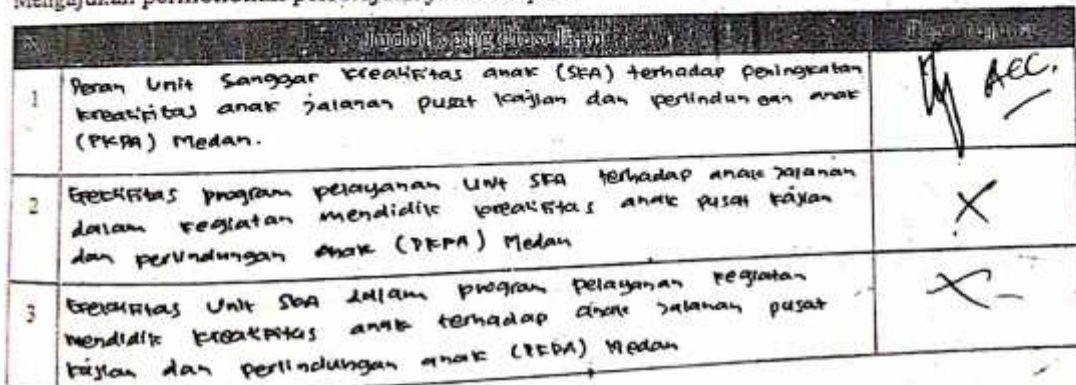 Mengajukan permohonan persetujuan
No Judul yang diusulkan Persetujuan
1 Peran Unit Sanggar kreatifitas anak (SKA) terhadap peningkatan ACC.
kreatifitas anak jalanan pusat kajian dan perlindungan anak
(PKPA) Medan.
2 Efektifitas program pelayanan Unit SKA terhadap anak jalanan X
dalam kegiatan mendidik kreatifitas anak pusat kajian
dan perlindungan anak (PKPA) Medan
3 Efektifitas Unit SKA dalam program pelayanan kegiatan X
mendidik kreatifitas anak terhadap anak jalanan pusat
kajian dan perlindungan anak (PKPA) Medan